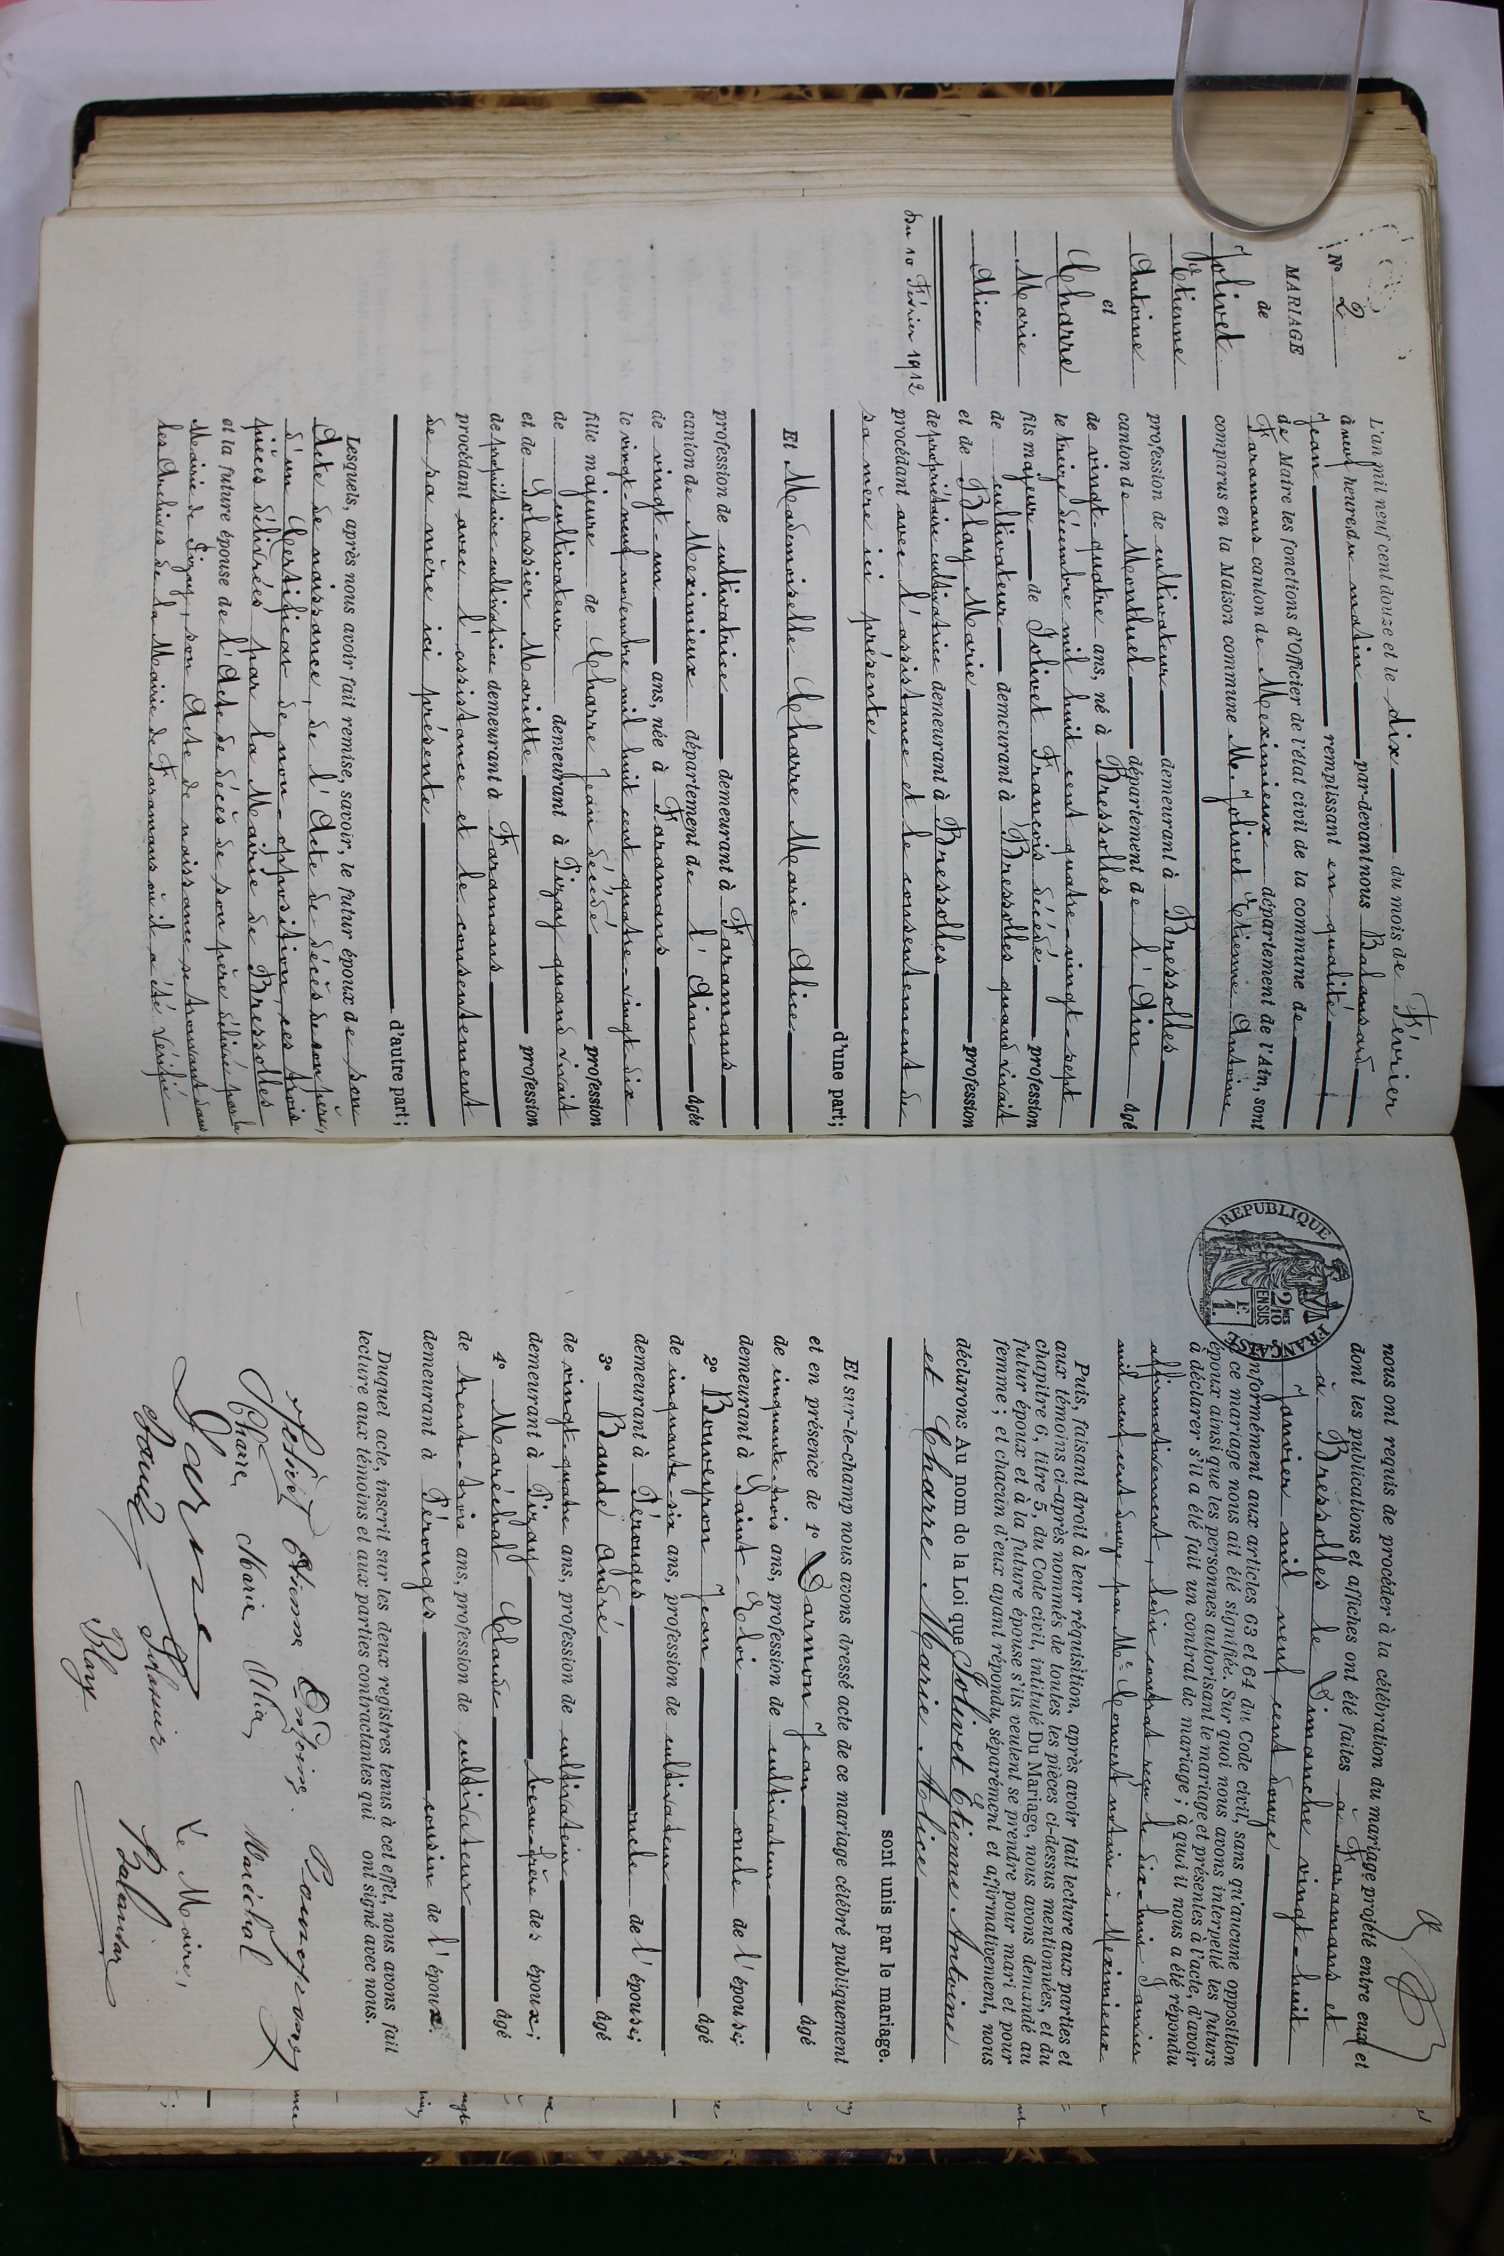 Nº 2
MARIAGE
de
Jolivet
Etienne
Antoine
et
Charre
Marie
Alice
Du 10 Février 1912
L'an mil neuf cent douze et le dix du mois de Février
à neuf heures du matin par-devant nous Balansard
Jean remplissant en qualité
de Maire les fonctions d'officier de l'état civil de la commune de
Faramans canton de Meximieux département de l'Ain, sont
comparus en la Maison commune M. Jolivet Etienne Antoine
profession de cultivateur demeurant à Bressolles
canton de Montluel département de l'Ain âgé
de vingt-quatre ans, né à Bressolles
le treize décembre mil huit cent quatre-vingt-sept
fils majeur de Jolivet François décédé profession
de cultivateur demeurant à Bressolles quand vivait
et de Blay Marie profession
de propriétaire cultivatrice demeurant à Bressolles
procédant avec l'assistance et le consentement de
sa mère ici présente
d'une part;
Et Mademoiselle Charre Marie Alice
profession de cultivatrice demeurant à Faramans
canton de Meximieux département de l'Ain âgée
de vingt-un ans, née à Faramans
le vingt-neuf novembre mil huit cent quatre-vingt dix
fille majeure de Charre Jean décédé profession
de cultivateur demeurant à Pizay quand vivait
et de Solassier Mariette profession
de propriétaire-cultivatrice demeurant à Faramans
procédant avec l'assistance et le consentement
de sa mère ici présente
d'autre part;
Lesquels, après nous avoir fait remise, savoir, le futur époux de son
Acte de naissance, de l'Acte de décès de son père,
d'un Certificat de non-opposition, ces trois
pièces délivrées par la Mairie de Bressolles
et la future épouse de l'Acte de décès de son père délivré par la
Mairie de Pizay, son Acte de naissance se trouvant dans
les Archives de la Mairie de Faramans où il a été vérifié
nous ont requis de procéder à la célébration du mariage projeté entre eux et
dont les publications et affiches ont été faites à Faramans et
à Bressolles le Dimanche vingt-huit
Janvier mil neuf cent douze
REPUBLIQUE FRANÇAISE
2/10 MES
EN SUS
1 F.
Conformément aux articles 63 et 64 du Code civil, sans qu'aucune opposition
à ce mariage nous ait été signifiée. Sur quoi nous avons interpellé les futurs
époux ainsi que les personnes autorisant le mariage et présentes à l'acte, d'avoir
à déclarer s'il a été fait un contrat de mariage; à quoi il nous a été répondu
affirmativement, ledit contrat reçu le dix-huit Janvier
mil neuf cent douze par Me Convert notaire à Meximieux
Puis, faisant droit à leur réquisition, après avoir fait lecture aux parties et
aux témoins ci-après nommés de toutes les pièces ci-dessus mentionnées, et du
chapitre 6, titre 5, du Code civil, intitulé Du Mariage, nous avons demandé au
futur époux et à la future épouse s'ils veulent se prendre pour mari et pour
femme; et chacun d'eux ayant répondu, séparément et affirmativement, nous
déclarons Au nom de la Loi que Jolivet Etienne Antoine
et Charre Marie Alice
sont unis par le mariage.
Et sur-le-champ nous avons dressé acte de ce mariage célébré publiquement
et en présence de 1º Darmon Jean âgé
de cinquante-trois ans, profession de cultivateur
demeurant à Saint-Eloi oncle de l'épouse;
2º Bouveyron Jean âgé
de cinquante-six ans, profession de cultivateur
demeurant à Pérouges oncle de l'épouse;
3º Baudé André âgé
de vingt-quatre ans, profession de cultivateur
demeurant à Pizay beau-frère des époux;
4º Maréchal Claude âgé
de trente-trois ans, profession de cultivateur
demeurant à Pérouges cousin de l'époux.
Duquel acte, inscrit sur les deux registres tenus à cet effet, nous avons fait
lecture aux témoins et aux parties contractantes qui ont signé avec nous.
Jolivet Etienne Antoine. Bouveyron
Chare Marie Alice Maréchal
Solassier Le Maire,
Baudé Balansard
Blay